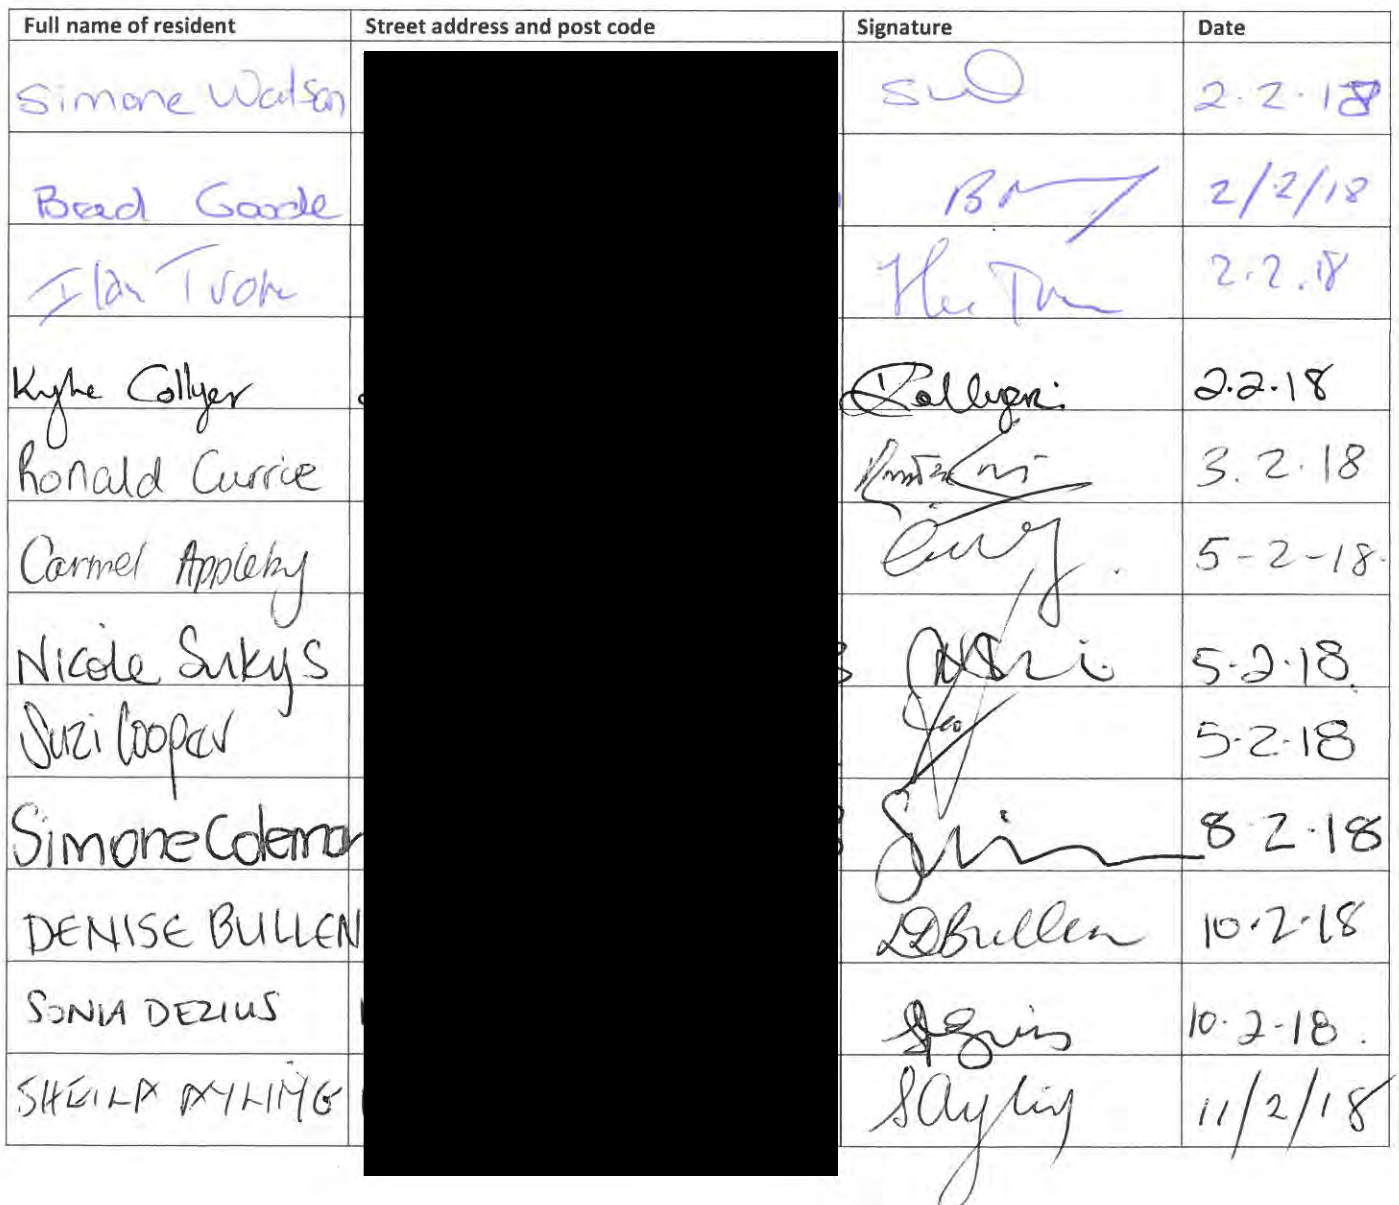 Full name of resident Street address and post code Signature Date
Simone Watson 2.2.18
Brad Goode 2/2/18
Ilan 2.2.18
Kylie Collyer 2.2.18
Ronald Currie 3.2.18
Carmel Appleby 5-2-18.
Nicole Sukys 5.2.18.
Suzi Cooper 5.2.18
Simone Coleman 8.2.18
DENISE BULLEN DBullen 10.2.18
SONIA DEZIUS 10.2-18.
SHEILA AYLING SAyling 11/2/18